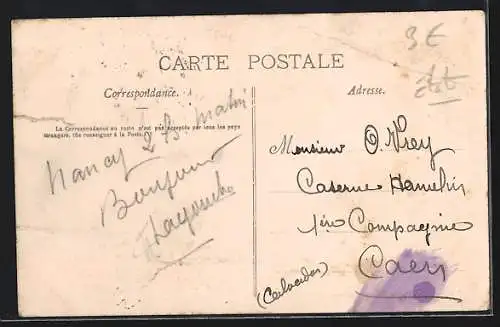 CARTE POSTALE
Correspondance.
Adresse.
La Correspondance au recto n'est pas acceptée par tous les pays
étrangers. (Se renseigner à la Poste.)
3 €
Nancy
Bonjour
Monsieur O. Vrey
Caserne Hamelin
1ère Compagnie
Caen
(Calvados)